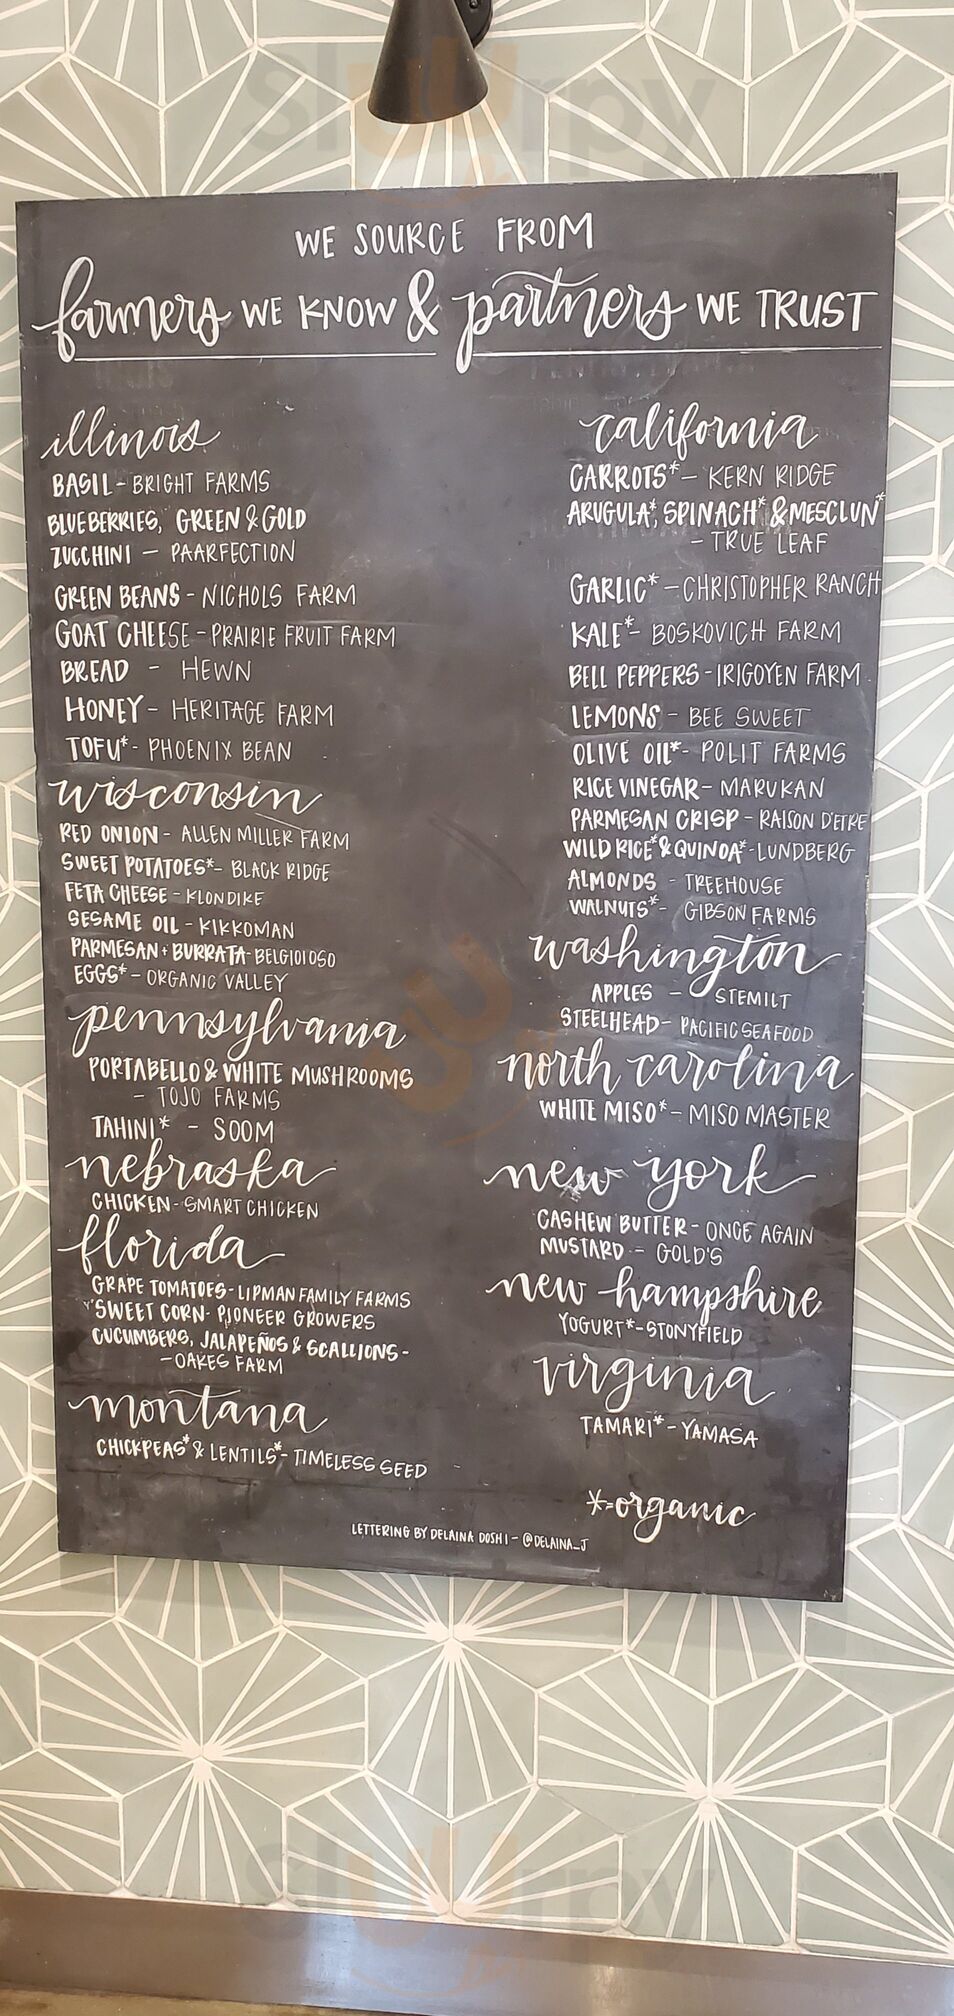 WE SOURCE FROM
farmers WE KNOW & partners WE TRUST
illinois
BASIL - BRIGHT FARMS
BLUEBERRIES, GREEN & GOLD
ZUCCHINI - PAARFECTION
GREEN BEANS - NICHOLS FARM
GOAT CHEESE - PRAIRIE FRUIT FARM
BREAD - HEWN
HONEY - HERITAGE FARM
TOFU* - PHOENIX BEAN
wisconsin
RED ONION - ALLEN MILLER FARM
SWEET POTATOES* - BLACK RIDGE
FETA CHEESE - KLONDIKE
SESAME OIL - KIKKOMAN
PARMESAN + BURRATA - BELGIOIOSO
EGGS* - ORGANIC VALLEY
pennsylvania
PORTABELLO & WHITE MUSHROOMS
- TOJO FARMS
TAHINI* - SOOM
nebraska
CHICKEN - SMART CHICKEN
florida
GRAPE TOMATOES - LIPMAN FAMILY FARMS
SWEET CORN - PIONEER GROWERS
CUCUMBERS, JALAPEÑOS & SCALLIONS -
- OAKES FARM
montana
CHICKPEAS* & LENTILS* - TIMELESS SEED
california
CARROTS* - KERN RIDGE
ARUGULA*, SPINACH* & MESCLUN*
- TRUE LEAF
GARLIC* - CHRISTOPHER RANCH
KALE* - BOSKOVICH FARM
BELL PEPPERS - IRIGOYEN FARM
LEMONS - BEE SWEET
OLIVE OIL* - POLIT FARMS
RICE VINEGAR - MARUKAN
PARMESAN CRISP - RAISON D'ETRE
WILD RICE* & QUINOA* - LUNDBERG
ALMONDS - TREEHOUSE
WALNUTS* - GIBSON FARMS
washington
APPLES - STEMILT
STEELHEAD - PACIFIC SEAFOOD
north carolina
WHITE MISO* - MISO MASTER
new york
CASHEW BUTTER - ONCE AGAIN
MUSTARD - GOLD'S
new hampshire
YOGURT* - STONYFIELD
virginia
TAMARI* - YAMASA
*=organic
LETTERING BY DELAINA DOSHI - @DELAINA_J
Sluurpy
Sluurpy